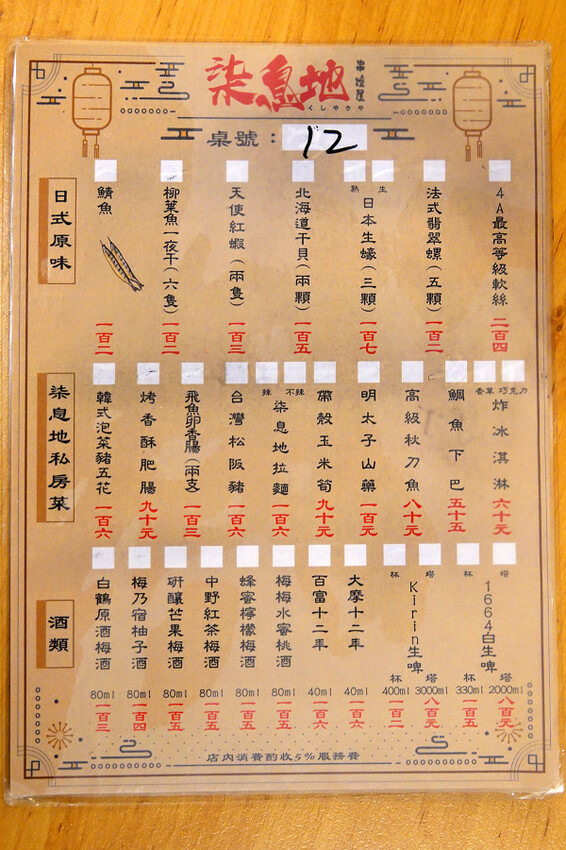 柒息地
串燒屋
くしやきや
桌號：12
日式原味
4A最高等級軟絲 二百四
法式翡翠螺(五顆) 一百二
生 熟
日本生蠔(三顆) 一百七
北海道干貝(兩顆) 一百五
天使紅蝦(兩隻) 一百三
柳葉魚一夜干(六隻) 一百二
鯖魚 一百二
柒息地私房菜
香草 巧克力
炸冰淇淋 六十元
鯛魚下巴 五十五
高級秋刀魚 八十元
明太子山藥 一百元
帶殼玉米筍 九十元
辣 不辣
柒息地拉麵 一百六
台灣松阪豬 一百六
飛魚卵香腸(兩支) 一百三
烤香酥肥腸 九十元
韓式泡菜豬五花 一百六
酒類
杯 塔
1664白生啤
杯 塔
330ml 2000ml
一百五 八百元
杯 塔
Kirin生啤
杯 塔
400ml 3000ml
一百二 八百元
大摩十二年 40ml 一百六
百富十二年 40ml 一百六
梅梅水蜜桃酒 80ml 一百五
蜂蜜檸檬梅酒 80ml 一百五
中野紅茶梅酒 80ml 一百五
研釀芒果梅酒 80ml 一百五
梅乃宿柚子酒 80ml 一百四
白鶴原酒梅酒 80ml 一百三
店內消費酌收5%服務費